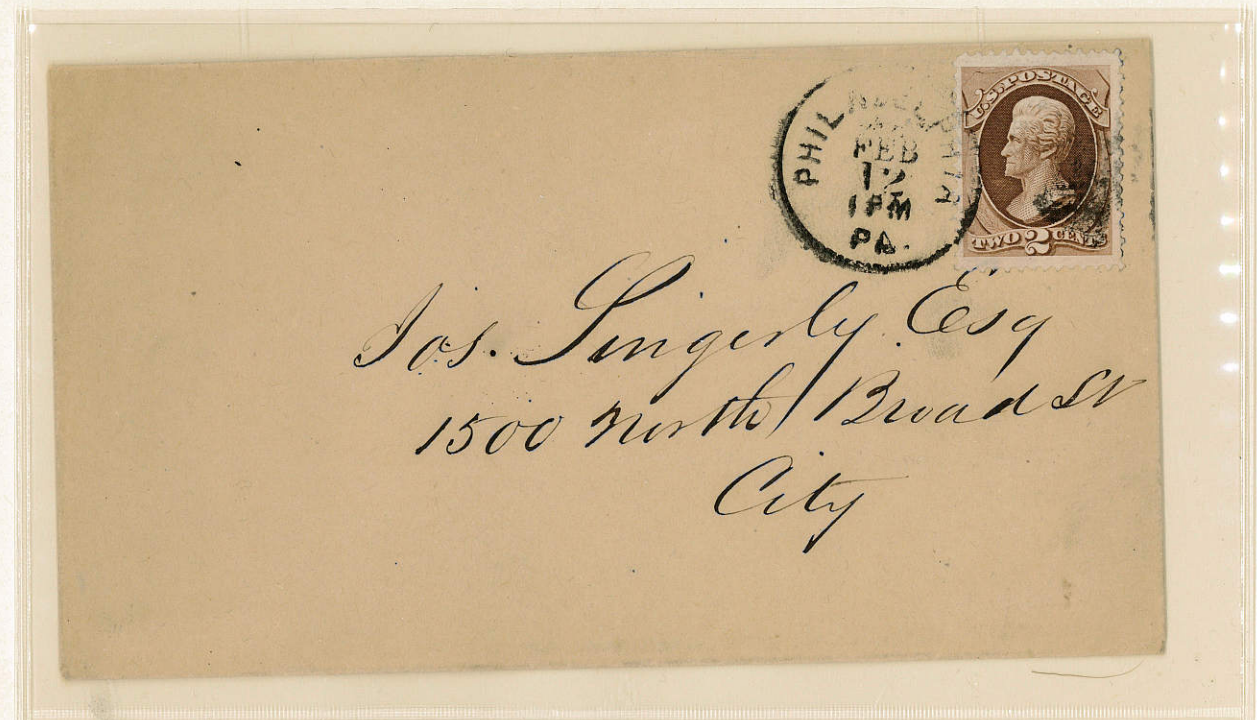 PHILADELPHIA
FEB
12
1PM
PA.
U.S. POSTAGE
TWO 2 CENTS
Jos. Singerly Esq
1500 North Broad St
City